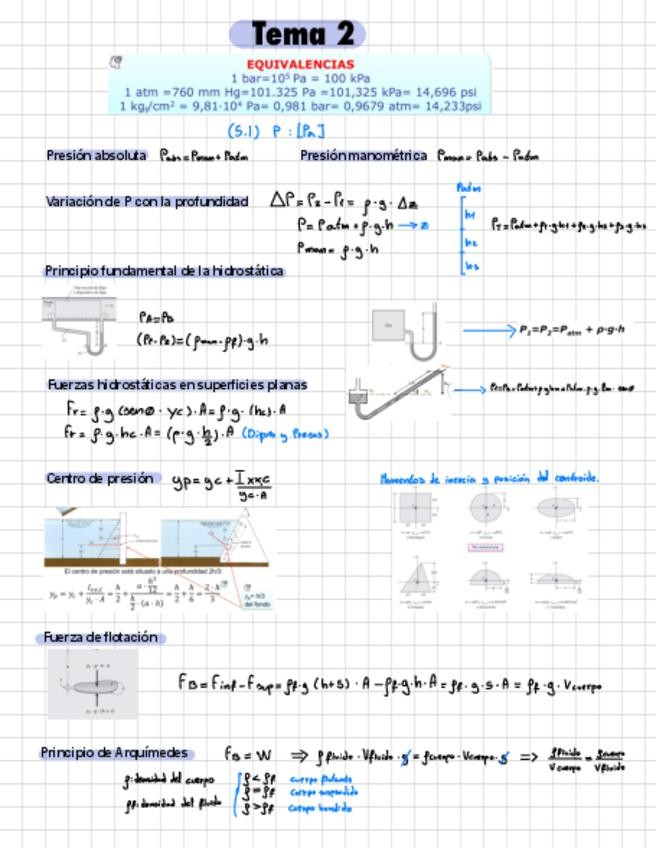 Tema 2
EQUIVALENCIAS
1 bar=10⁵ Pa = 100 kPa
1 atm =760 mm Hg=101.325 Pa =101,325 kPa= 14,696 psi
1 kgf/cm² = 9,81·10⁴ Pa= 0,981 bar= 0,9679 atm= 14,233psi
(S.I) P : [Pa]
Presión absoluta Pabs = Pman + Patm
Presión manométrica Pman = Pabs - Patm
Variación de P con la profundidad ΔP = P2 - P1 = ρ·g·Δz
P = Patm + ρ·g·h → z
Pman = ρ·g·h
Patm
h1
h2
h3
PT = Patm + ρ1·g·h1 + ρ2·g·h2 + ρ3·g·h3
Principio fundamental de la hidrostática
PA = PB
(P1 - P2) = (ρman - ρf)·g·h
P1=P2=Patm + ρ·g·h
Fuerzas hidrostáticas en superficies planas
Fr = ρ·g (senθ · yc) · A = ρ·g·(hc)·A
Fr = ρ·g·hc·A = (ρ·g·h/2)·A (Diques y Presas)
Centro de presión yp = yc + Ixxc/yc·A
Momentos de inercia y posición del centroide.
El centro de presión está situado a una profundidad 2h/3:
yp = yc + Ixx,c/yc·A = h/2 + (a·h³/12)/(h/2·(a·h)) = h/2 + h/6 = 2·h/3
yp= h/3
del fondo
Fuerza de flotación
FB = Finf - Fsup = ρf·g (h+s) · A - ρf·g·h·A = ρf·g·s·A = ρf·g·Vcuerpo
Principio de Arquímedes FB = W ⇒ ρfluido·Vfluido·g = ρcuerpo·Vcuerpo·g ⇒ ρfluido/Vcuerpo = ρcuerpo/Vfluido
ρ: densidad del cuerpo
ρf: densidad del fluido
ρ < ρf cuerpo flotante
ρ = ρf Cuerpo suspendido
ρ > ρf Cuerpo hundido